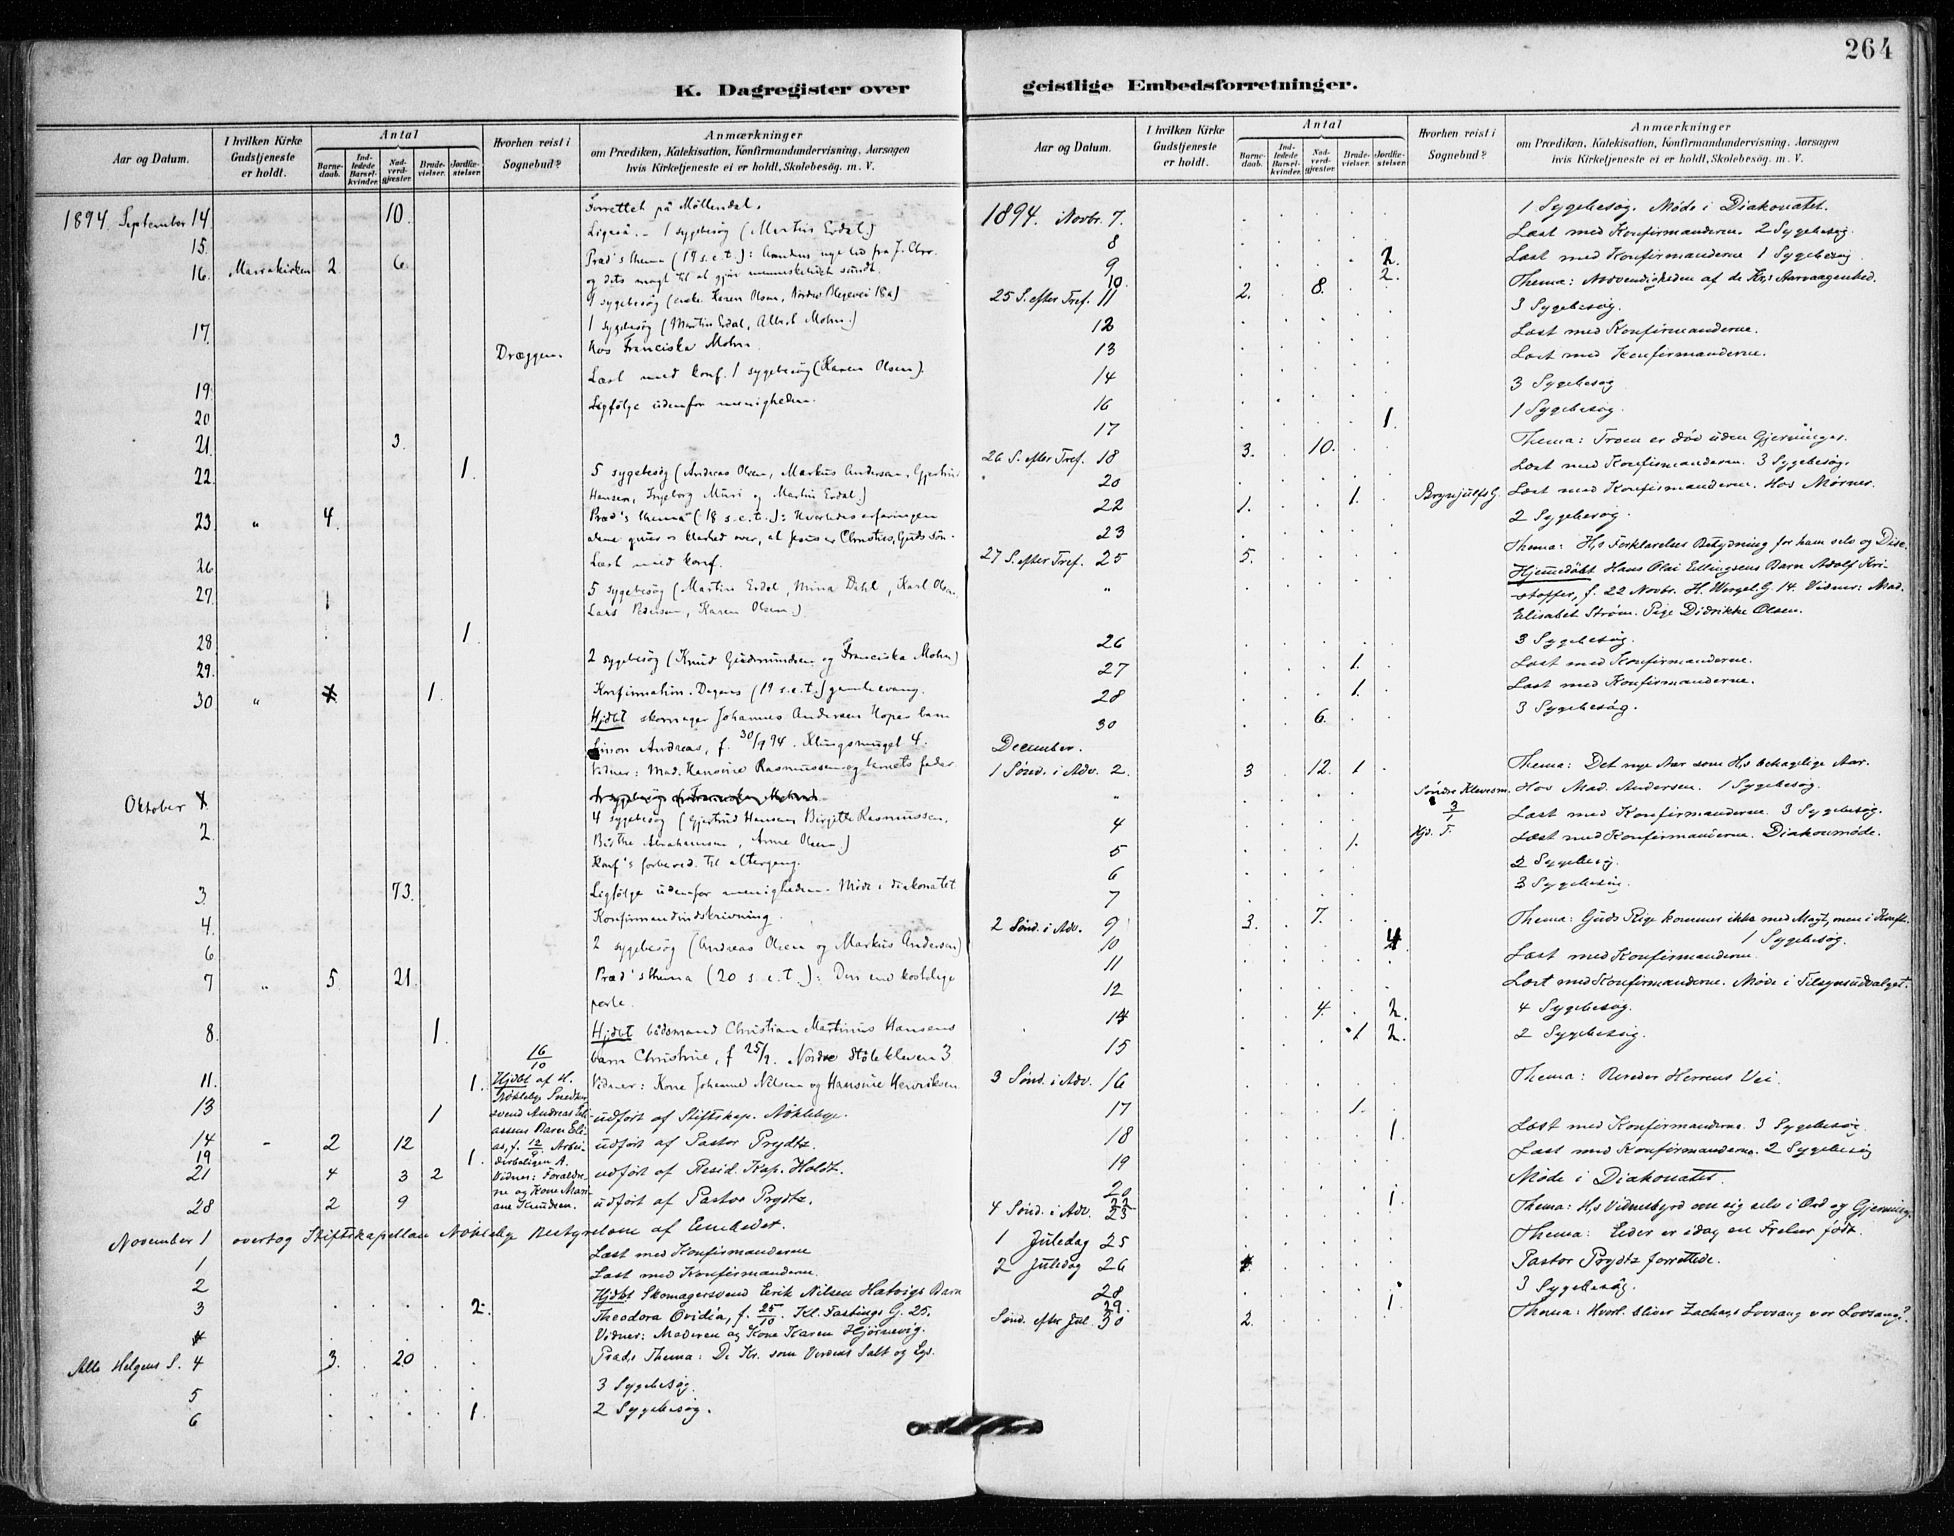 264
K. Dagregister over geistlige Embedsforretninger.
Aar og Datum.
I hvilken Kirke
Gudstjeneste
er holdt.
Antal
Barne-
daab.
Ind-
ledede
Barsel-
kvinder.
Nad-
verd-
gjæster.
Brude-
vielser.
Jordfæ-
stelser.
Hvorhen reist i
Sognebud?
Anmærkninger
om Prædiken, Katekisation, Konfirmandundervisning, Aarsagen
hvis Kirketjeneste ei er holdt, Skolebesøg. m. V.
1894. September 14 10. Forrettet på Möllendal.
15. Ligeså. - 1 sygebesög (Martin Erdal)
16. Mariakirken 2 6. Præd's thema (17 s. e. t.):
og dets magt til at gjør menneskelivet sundt.
9 sygebesög (enke Karen Olsen,
17. 1 sygebesög (Martin Erdal, Albert Mohn.)
Dræggen. hos Franciska Mohn
19. Læst med konf. 1 sygebesög (Karen Olsen).
20 Ligfölge udenfor menigheden.
21. 3
22. 1 5 sygebesög (Andreas Olsen, Markus Andersen, Gjertrud
Hansen, Ingeborg Muri og Martin Erdal.)
23 " 4. Præd's thema (18 s. e. t.): Hvorledes erfaringen
alene giver os klarhed over, at Jesus er Christus, Guds sön.
26 Læst med konf.
27. 1 5 sygebesög (Martin Erdal, Mina Dahl, Karl Olsen,
Lars Pedersen, Karen Olsen.)
28 1
29. 2 sygebesög (Knud Gudmundsen og Franciska Mohn)
30 " 1. Konfirmation. Dagens (19 s. e. t.) gamle evang.
Hjdbt skomager Johannes Andersen Hopes barn
Simon Andreas, f. 30/9 94. Klingsmuget 4.
Vidner: Mad. Hansine Rasmussen og barnets fader.
Oktober 1
2. 4 sygebesög (Gjertrud Hansen, Birgitte Rasmussen,
Birthe Abrahamsen, Anne Olsen)
Konf's forbered. til altergang.
3. 73. Ligfölge udenfor menigheden. Möde i diakonatet
4. Konfirmandindskrivning.
6 2 sygebesög (Andreas Olsen og Markus Andersen)
7 " 5. 21. Præd's thema (20 s. e. t.): Den ene kostelige
perle.
8. 1 Hjdbt bådsmand Christian Martinius Hansens
barn Christine, f 25/9. Nordre Stölekleven 3
11. 1. Vidner: Kone Johanne Nilsen og Hansine Henriksen
16/10
Hjdbt af H.
Nökleby Snedker-
svend Andreas Eli-
assens Barn Eli-
as, f. 12/9 Arbei-
derboligen A.
Vidner: Forældre-
ne og Kone Mari-
ane Knudsen.
13 1 udfört af Stiftskap. Nökleby.
14 - 2 12 udfört af Pastor Prydtz.
19 1.
21 4 3 2 udfört af Resid. Kap. Holdt.
28 2 9 udfört af Pastor Prydtz.
November 1 overtog Stiftskapellan Nökleby Bestyrelsen af Embedet.
1 Læst med Konfirmanderne
2 Læst med Konfirmanderne.
3 2. Hjdbt Skomagersvend Erik Nilsen Hatvigs Barn
Theodora Ovidia, f. 25/10. Kl. Fastings G. 25.
4 Vidner: Moderen og Kone Karen Hjørnevig.
Alle Helgens S. 4 3. 20 Præds Thema: De Kr. som Verdens Salt og Lys.
5 3 Sygebesøg.
6 1 2 Sygebesøg.
Aar og Datum.
I hvilken Kirke
Gudstjeneste
er holdt.
Antal
Barne-
daab.
Ind-
ledede
Barsel-
kvinder.
Nad-
verd-
gjæster.
Brude-
vielser.
Jordfæ-
stelser.
Hvorhen reist i
Sognebud?
Anmærkninger
om Prædiken, Katekisation, Konfirmandundervisning, Aarsagen
hvis Kirketjeneste ei er holdt, Skolebesøg. m. V.
1894. Novbr. 7. 1 Sygebesøg. Møde i Diakonatet.
8 Læst med Konfirmanderne. 2 Sygebesøg.
9 2. Læst med Konfirmanderne 1 Sygebesøg
10. 2.
25 S. efter Tref. 11 2. 8. Thema: Nødvendigheden af de Kr.s Aarvaagenhed.
12 3 Sygebesøg.
13 Læst med Konfirmanderne.
14 Læst med Konfirmanderne.
16 3 Sygebesøg
17 1. 1 Sygebesøg.
26 S. efter Tref. 18 3. 10. Thema: Troen er død uden Gjerninger.
20 Læst med Konfirmanderne. 3 Sygebesøg.
22 1. 1. Brynjulfs G. Læst med Konfirmanderne. Hos Mørner.
23 2 Sygebesøg.
27 S. efter Tref. 25 5. Thema: H.s Forklarelses Betydning for ham selv og Disc.
" Hjemmedøbt Hans Olai Ellingsens Barn Adolf Kri-
stoffer, f. 22 Novbr. H. Wergel. G. 14. Vidner: Mad.
Elisabet Strøm. Pige Didrikke Olsen.
26 3 Sygebesøg.
27 1. Læst med Konfirmanderne.
28 1. Læst med Konfirmanderne.
30 6. 3 Sygebesøg.
December.
1 Sønd. i Adv. 2. 3 12. 1 Thema: Det nye Aar som H.s behagelige Aar.
" Søndre Klevesm. Hos Mad. Andersen. 1 Sygebesøg.
4 3/1 Læst med Konfirmanderne. 3 Sygebesøg.
5 1. Hjd. F. Læst med Konfirmanderne. Diakonmøde.
6 2 Sygebesøg.
7 3 Sygebesøg.
2 Sønd. i Adv. 9 3. 7. Thema: Guds Rige kommer ikke med Magt, men i Kraft.
10 4 1 Sygebesøg.
11 Læst med Konfirmanderne.
12 Læst med Konfirmanderne. Møde i Tilsynsudvalget.
14 4. 2. 4 Sygebesøg.
15 1 2. 2 Sygebesøg.
3 Sønd. i Adv. 16 Thema: Bereder Herrens Vei.
17 1.
18 1. Læst med Konfirmanderne. 3 Sygebesøg.
19 Læst med Konfirmanderne. 2 Sygebesøg
20 Møde i Diakonatet.
22 1.
4 Sønd. i Adv. 23 Thema: H.s Vidnesbyrd om sig selv i Ord og Gjerning.
1 Juledag 25 Thema: Eder er idag en Frelser født.
2 Juledag 26 Pastor Prydtz forrettede.
28 3 Sygebesøg.
29. 1
Sønd. efter Jul. 30 2. Thema: Hvorl. bliver Zacharias Lovsang vor Lovsang?